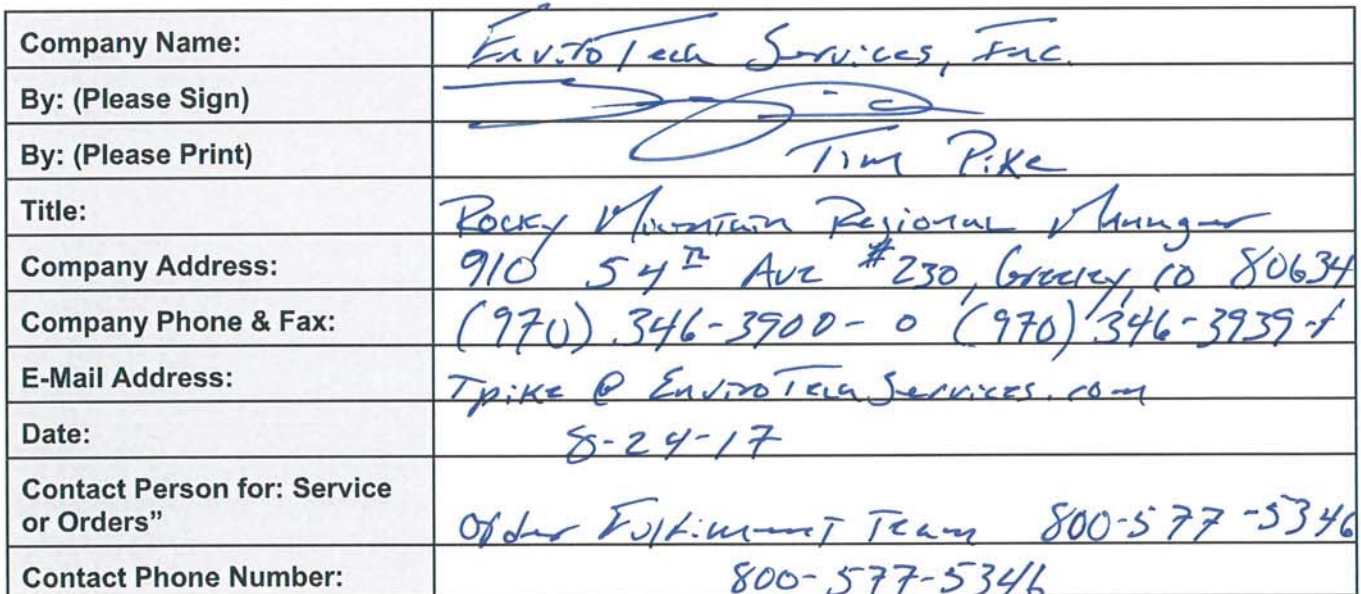 Company Name: EnviroTech Services, Inc.
By: (Please Sign)
By: (Please Print) Tim Pike
Title: Rocky Mountain Regional Manager
Company Address: 910 54th Ave #230, Greeley, CO 80634
Company Phone & Fax: (970) 346-3900 - o (970) 346-3939 - f
E-Mail Address: Tpike @ EnviroTechServices.com
Date: 8-24-17
Contact Person for: Service
or Orders” Order Fulfillment Team 800-577-5346
Contact Phone Number: 800-577-5346